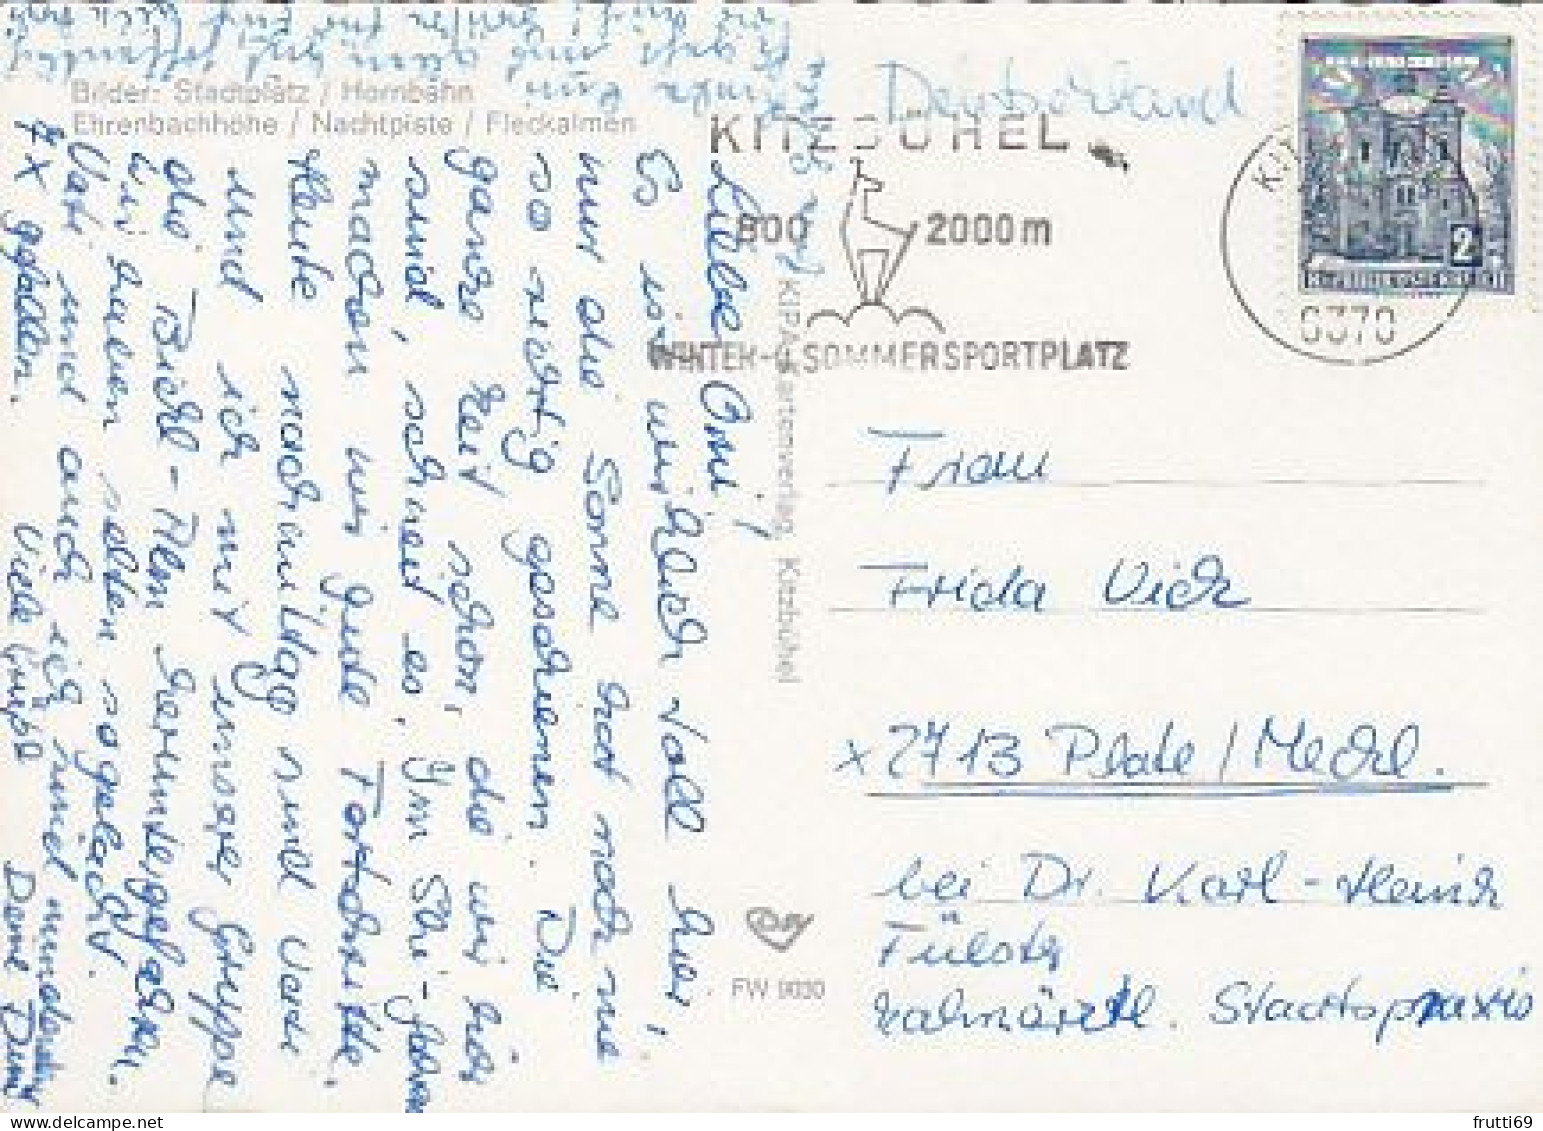 Bilder: Stadtplatz / Hornbahn
Ehrenbachhöhe / Nachtpiste / Fleckalmen
Liebe Omi!
Es ist wirklich toll hier,
nur die Sonne hat noch nie
so richtig geschienen. Die
ganze Zeit schon, die wir hier
sind, schneit es. Im Ski-fahren
machen wir gute Fortschritte.
Heute nachmittag sind Vati
und ich mit unserer Gruppe
die Bichl-Alm heruntergefahren.
Wir haben selten so gelacht.
Vati und auch ich sind mindestens
4x gefallen. Viele Grüße
KIPA-Kartenverlag, Kitzbühel
FW 9030
Deutschland
KITZBÜHEL
800 2000 m
WINTER- U. SOMMERSPORTPLATZ
6370
2
REPUBLIK ÖSTERREICH
Frau
Frida Vick
x 2713 Plate / Meckl.
bei Dr. Karl-Heinz
zahnärztl. Stadtspraxis
frutti69